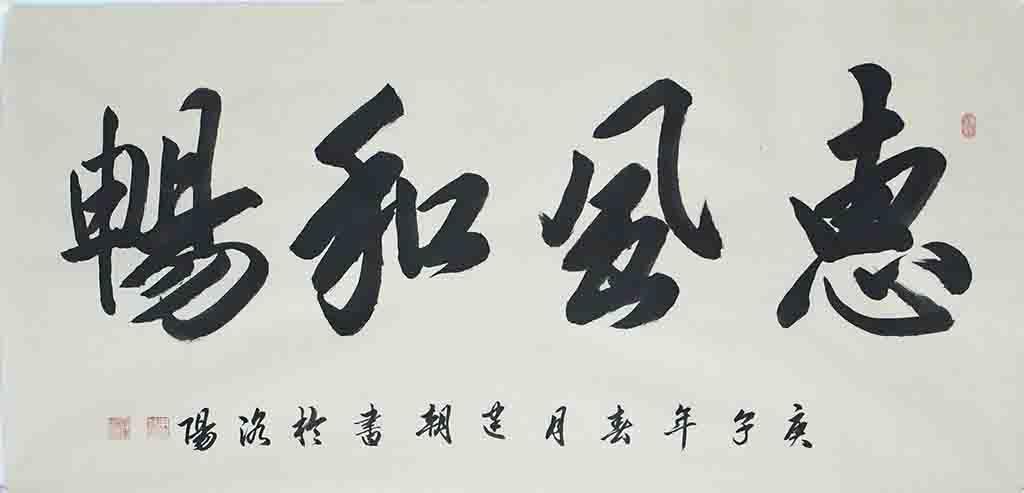 惠風和暢
庚子年春月建朝書於洛陽